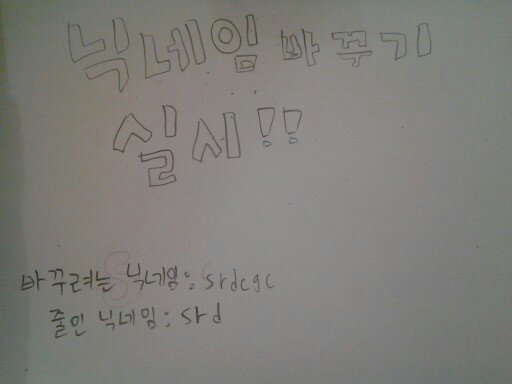 닉네임 바꾸기
실시!!
바꾸려는 닉네임: srdcgc
줄인 닉네임: srd